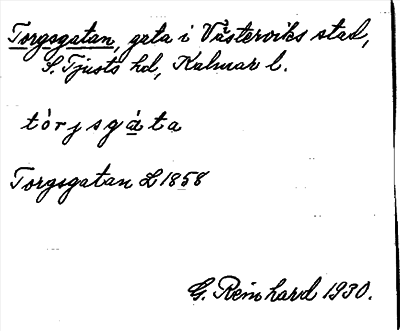 Torgsgatan, gata i Västerviks stad,
S. Tjusts hd, Kalmar l.
tòrjsgàta
Torgsgatan L 1858
G. Reinhard 1930.